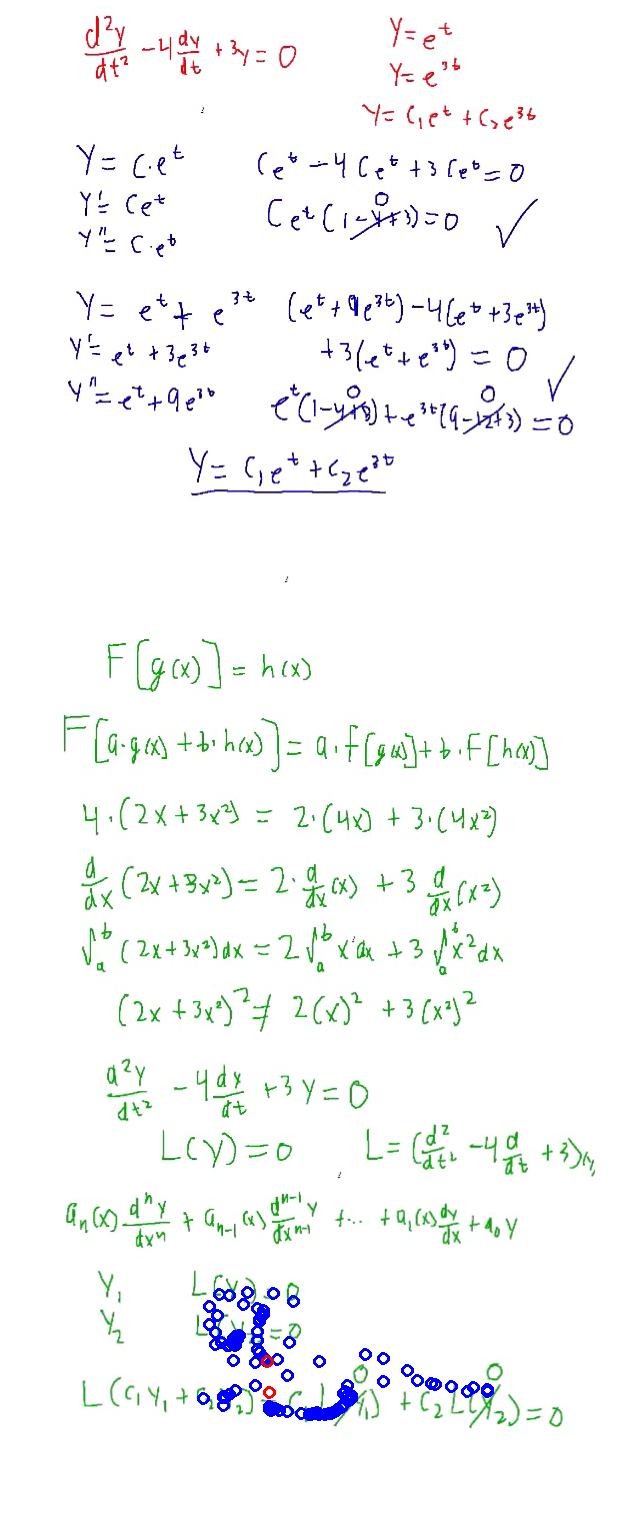 d²y/dt² - 4 dy/dt + 3y = 0
y = e^t
y = e^{3t}
y = c₁e^t + c₂e^{3t}
y = c·e^t
y' = ce^t
y'' = c·e^t
ce^t - 4ce^t + 3ce^t = 0
ce^t(1-4+3) = 0 ✓
0
y = e^t + e^{3t}
y' = e^t + 3e^{3t}
y'' = e^t + 9e^{3t}
(e^t + 9e^{3t}) - 4(e^t + 3e^{3t})
+3(e^t + e^{3t}) = 0 ✓
0 0
e^t(1-4+3) + e^{3t}(9-12+3) = 0
y = c₁e^t + c₂e^{3t}
F[g(x)] = h(x)
F[a·g(x) + b·h(x)] = a·F[g(x)] + b·F[h(x)]
4·(2x + 3x²) = 2·(4x) + 3·(4x²)
d/dx (2x + 3x²) = 2·d/dx(x) + 3 d/dx(x²)
∫_a^b (2x + 3x²)dx = 2∫_a^b x dx + 3∫_a^b x² dx
(2x + 3x²)² ≠ 2(x)² + 3(x²)²
d²y/dt² - 4 dy/dt + 3y = 0
L(y) = 0
L = (d²/dt² - 4 d/dt + 3)
a_n(x) d^n y/dx^n + a_{n-1}(x) d^{n-1}y/dx^{n-1} + ... + a₁(x) dy/dx + a₀y
y₁
y₂ = 0
0 0
L(c₁y₁ + + c₂L(y₂) = 0